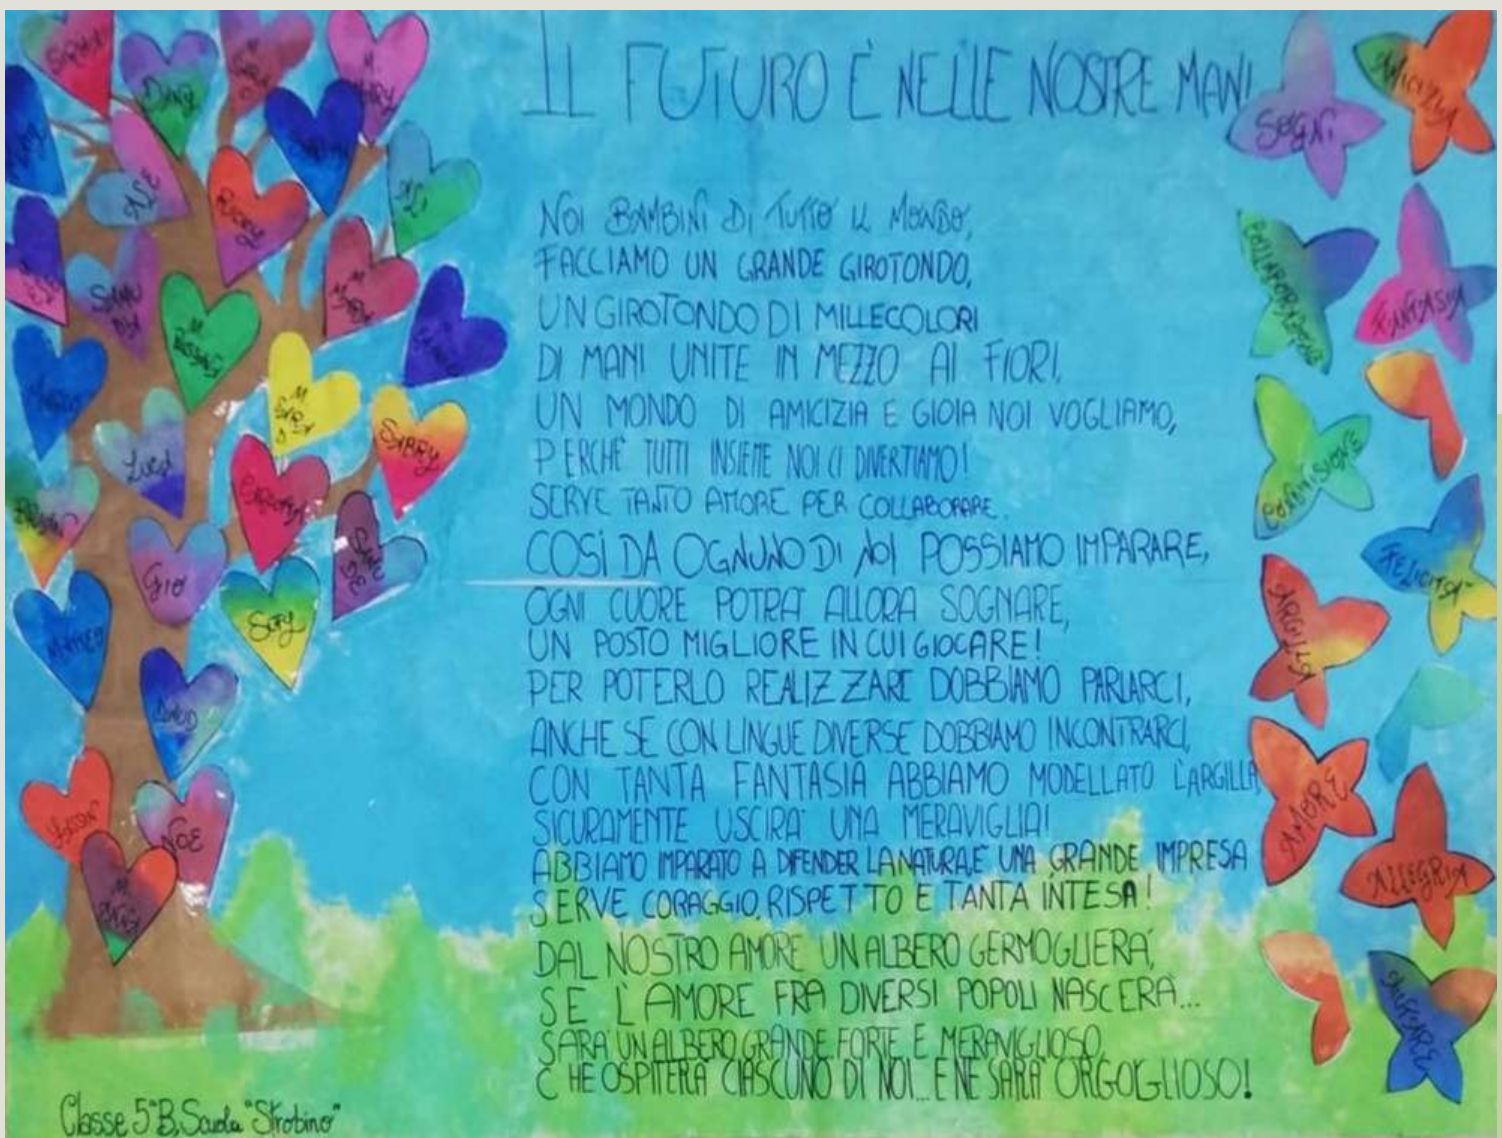 IL FUTURO È NELLE NOSTRE MANI
NOI BAMBINI DI TUTTO IL MONDO,
FACCIAMO UN GRANDE GIROTONDO,
UN GIROTONDO DI MILLECOLORI
DI MANI UNITE IN MEZZO AI FIORI.
UN MONDO DI AMICIZIA E GIOIA NOI VOGLIAMO,
PERCHÈ TUTTI INSIEME NOI CI DIVERTIAMO!
SERVE TANTO AMORE PER COLLABORARE.
COSÌ DA OGNUNO DI NOI POSSIAMO IMPARARE,
OGNI CUORE POTRÀ ALLORA SOGNARE,
UN POSTO MIGLIORE IN CUI GIOCARE!
PER POTERLO REALIZZARE DOBBIAMO PARLARCI,
ANCHE SE CON LINGUE DIVERSE DOBBIAMO INCONTRARCI,
CON TANTA FANTASIA ABBIAMO MODELLATO L'ARGILLA,
SICURAMENTE USCIRÀ UNA MERAVIGLIA!
ABBIAMO IMPARATO A DIFENDER LA NATURA,È UNA GRANDE IMPRESA
SERVE CORAGGIO, RISPETTO E TANTA INTESA!
DAL NOSTRO AMORE UN ALBERO GERMOGLIERÀ,
SE L'AMORE FRA DIVERSI POPOLI NASCERÀ...
SARÀ UN ALBERO GRANDE, FORTE E MERAVIGLIOSO,
CHE OSPITERÀ CIASCUNO DI NOI...E NE SARÀ ORGOGLIOSO!
Classe 5ªB, Scuola "Strobino"
DANY
ALE
RICKY
ALI
LUCA
SABRY
GIO
SOFY
MATTEO
DAVID
NOE
SOGNI
AMICIZIA
COLLABORAZIONE
FANTASIA
CONDIVISIONE
FELICITÀ
ARGILLA
AMORE
ALLEGRIA